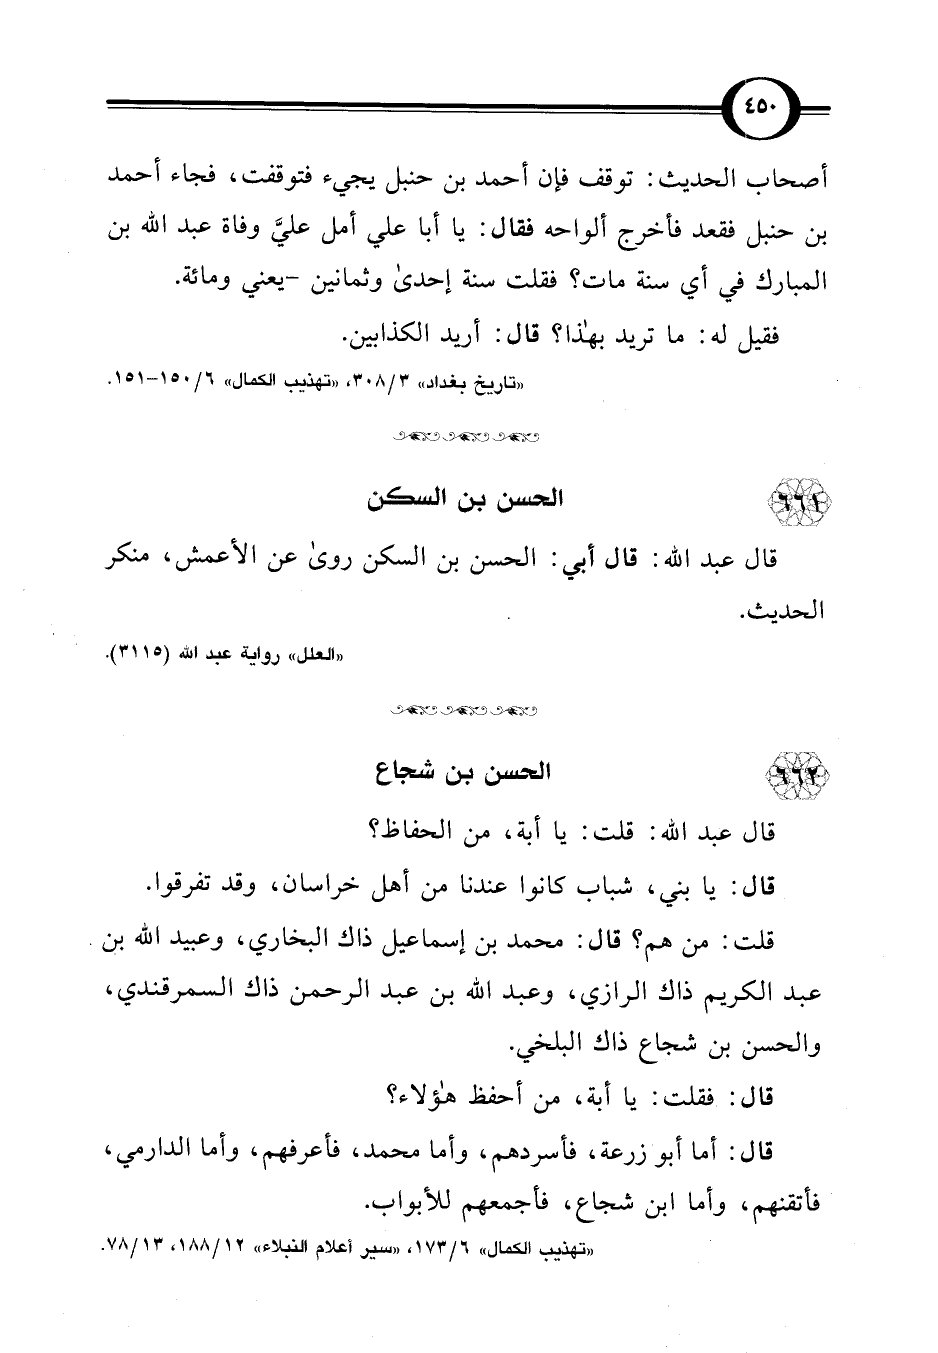 ٤٥٠
أصحاب الحديث: توقف فإن أحمد بن حنبل يجيء فتوقفت، فجاء أحمد
بن حنبل فقعد فأخرج ألواحه فقال: يا أبا علي أمل عليَّ وفاة عبد الله بن
المبارك في أي سنة مات؟ فقلت سنة إحدىٰ وثمانين -يعني ومائة.
فقيل له: ما تريد بهٰذا؟ قال: أريد الكذابين.
«تاريخ بغداد» ٣٠٨/٣، «تهذيب الكمال» ١٥٠/٦-١٥١.
٦٦١
الحسن بن السكن
قال عبد الله: قال أبي: الحسن بن السكن روىٰ عن الأعمش، منكر
الحديث.
«العلل» رواية عبد الله (٣١١٥).
٦٦٢
الحسن بن شجاع
قال عبد الله: قلت: يا أبة، من الحفاظ؟
قال: يا بني، شباب كانوا عندنا من أهل خراسان، وقد تفرقوا.
قلت: من هم؟ قال: محمد بن إسماعيل ذاك البخاري، وعبيد الله بن
عبد الكريم ذاك الرازي، وعبد الله بن عبد الرحمن ذاك السمرقندي،
والحسن بن شجاع ذاك البلخي.
قال: فقلت: يا أبة، من أحفظ هٰؤلاء؟
قال: أما أبو زرعة، فأسردهم، وأما محمد، فأعرفهم، وأما الدارمي،
فأتقنهم، وأما ابن شجاع، فأجمعهم للأبواب.
«تهذيب الكمال» ١٧٣/٦، «سير أعلام النبلاء» ١٨٨/١٢، ٧٨/١٣.